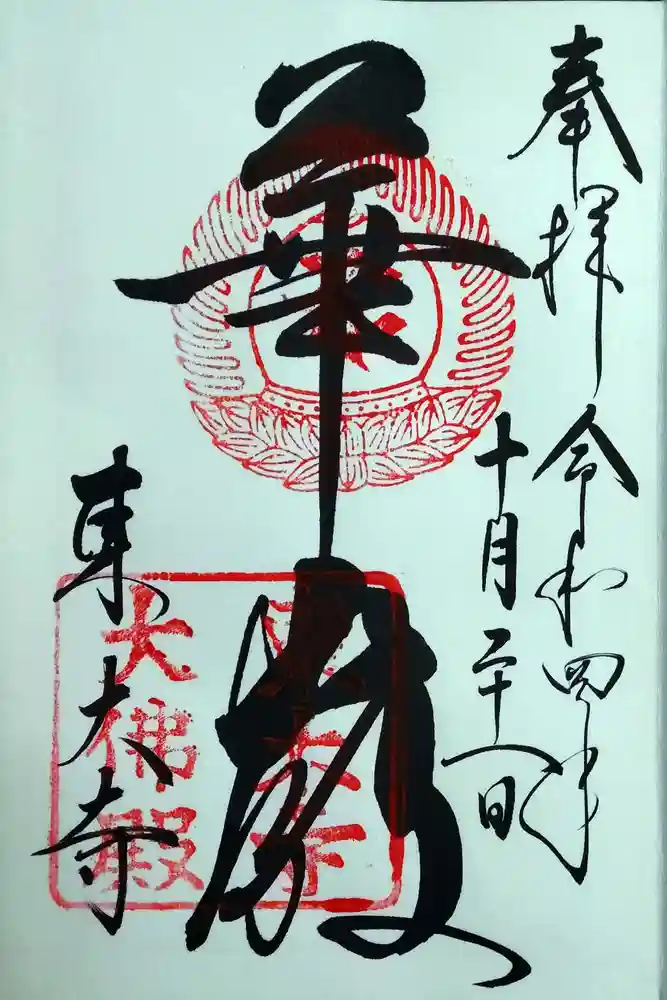 奉拝 令和四年
十月二十八日
華厳
東大寺
東大寺
大佛殿